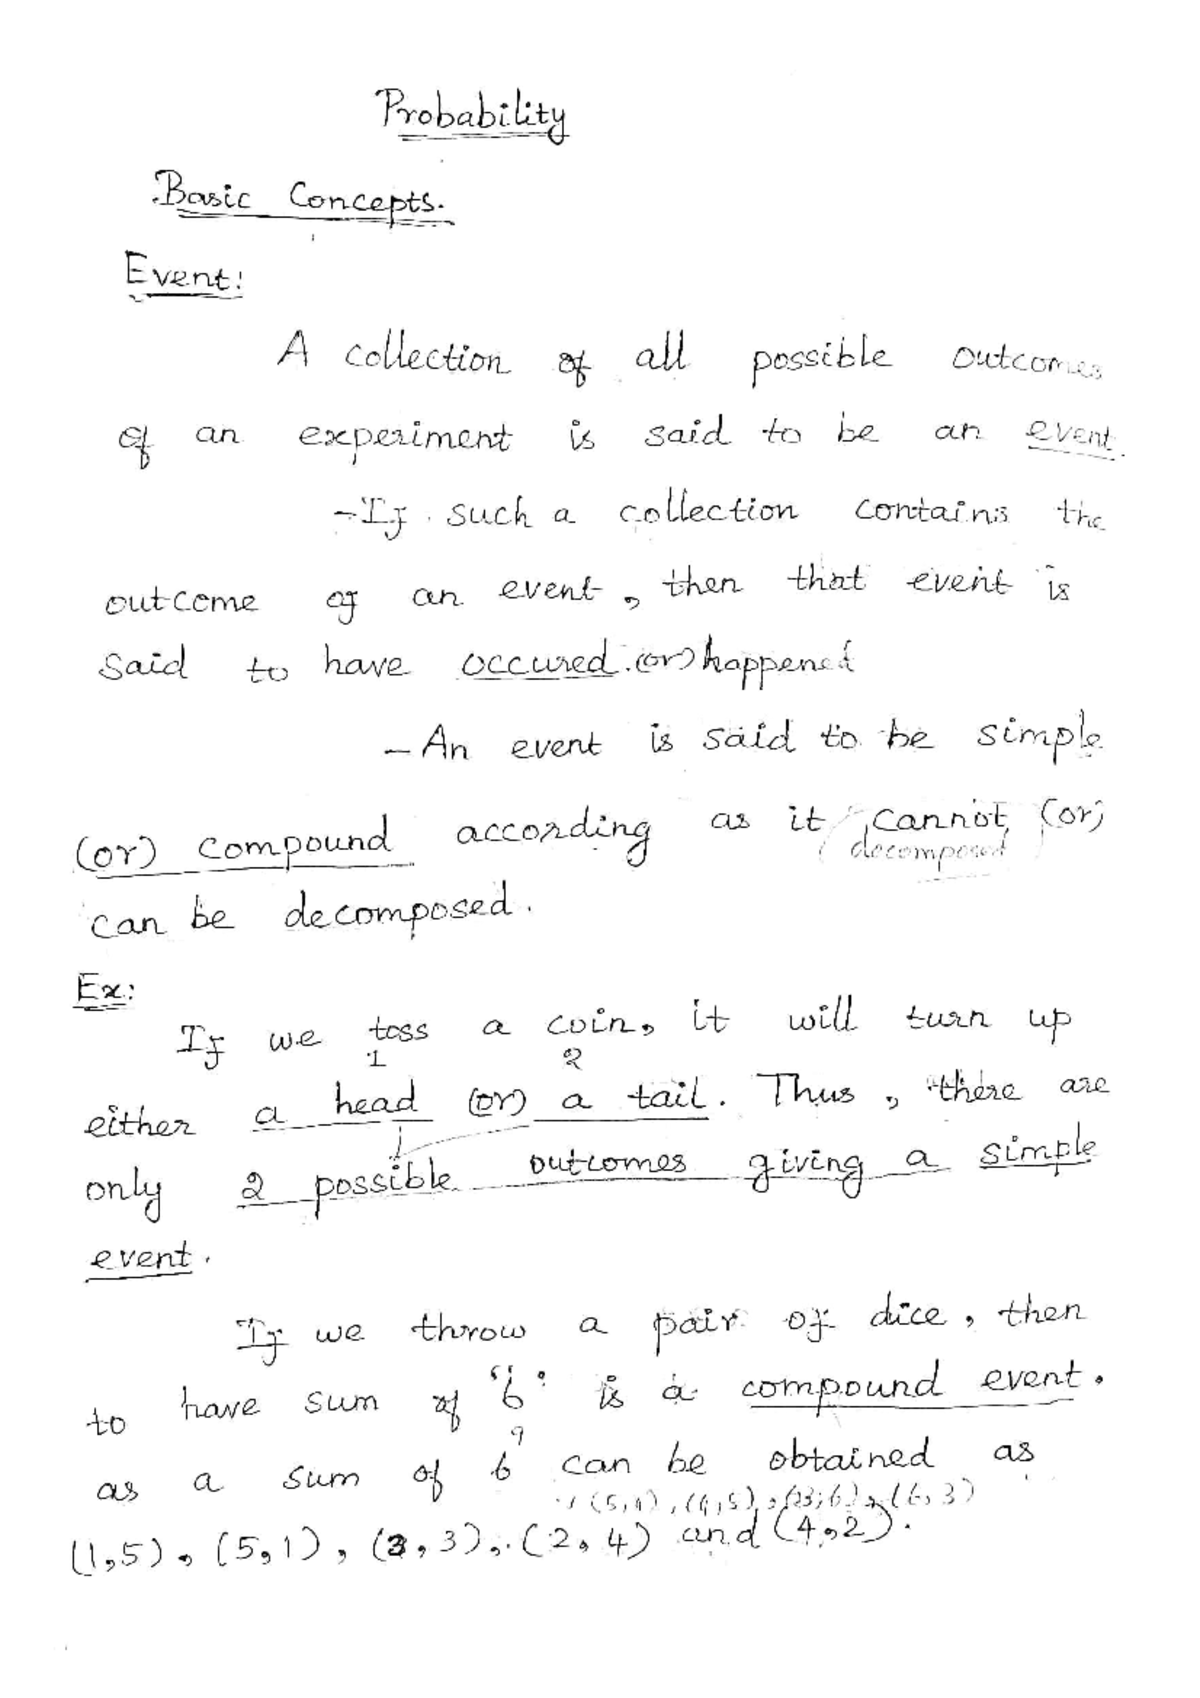 Probability
Basic Concepts.
Event:
A collection of all possible outcomes
of an experiment is said to be an event.
-If such a collection contains the
outcome of an event, then that event is
said to have occured. (or) happened
- An event is said to be simple
(or) compound according as it cannot (or)
decomposed
can be decomposed.
Ex:
If we toss a coin, it will turn up
1 2
either a head (or) a tail. Thus, there are
only 2 possible outcomes giving a simple
event.
If we throw a pair of dice, then
to have sum of "6" is a compound event.
9
as a sum of 6 can be obtained as
(5,4), (4,5), (3,6), (6,3)
(1,5), (5,1), (3,3), (2,4) and (4,2).